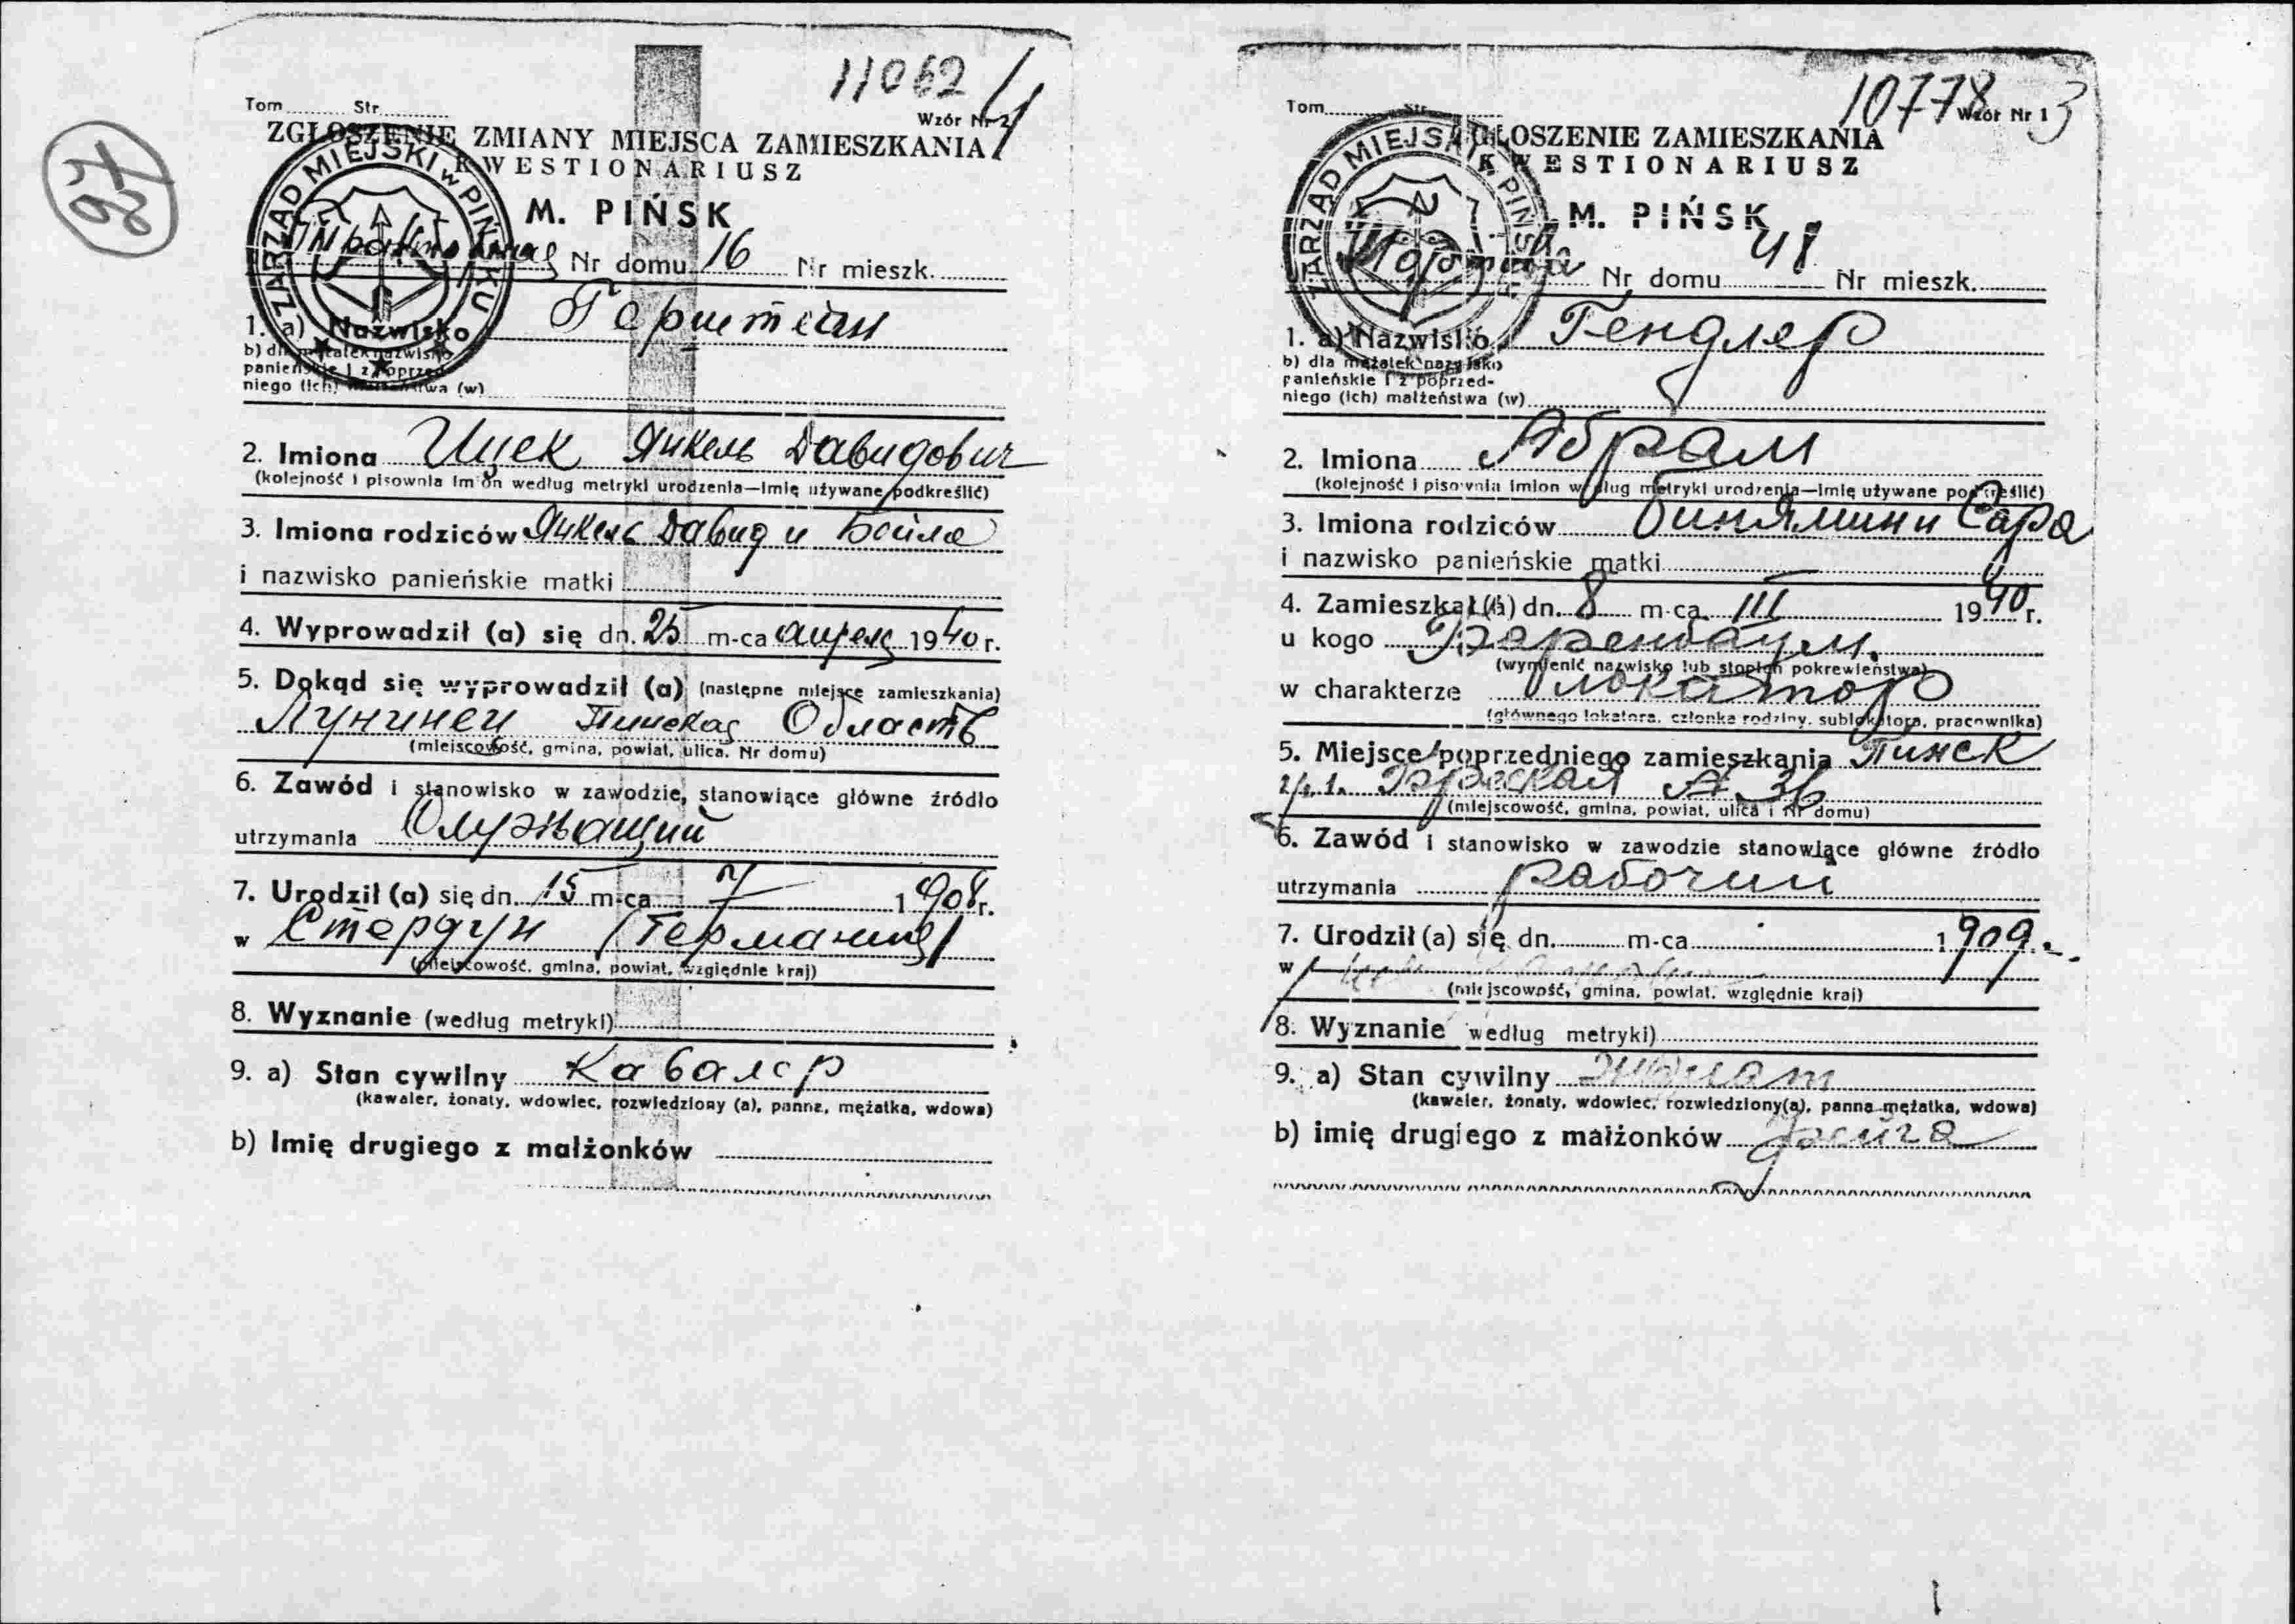 11062/1
Tom Str.
Wzór Nr 2
ZGŁOSZENIE ZMIANY MIEJSCA ZAMIESZKANIA
KWESTIONARIUSZ
ZARZĄD MIEJSKI w PIŃSKU
M. PIŃSK
Nr domu 16 Nr mieszk.
1. a) Nazwisko Герштейн
b) dla mężatek nazwisko
panieńskie i z poprzed-
niego (ich) małżeństwa (w)
2. Imiona Ицек Янкель Давидович
(kolejność i pisownia imion według metryki urodzenia—imię używane podkreślić)
3. Imiona rodziców Янкель Давид и Бейла
i nazwisko panieńskie matki
4. Wyprowadził (a) się dn. 25 m-ca апрель 1940 r.
5. Dokąd się wyprowadził (a) (następne miejsce zamieszkania)
Лунинец Пинская Область
(miejscowość, gmina, powiat, ulica, Nr domu)
6. Zawód i stanowisko w zawodzie, stanowiące główne źródło
utrzymania Служащий
7. Urodził (a) się dn. 15 m-ca 1908 r.
w Стердын (Германия)
(miejscowość, gmina, powiat, względnie kraj)
8. Wyznanie (według metryki)
9. a) Stan cywilny Кавалер
(kawaler, żonaty, wdowiec, rozwiedziony (a), panna, mężatka, wdowa)
b) Imię drugiego z małżonków
10778 3
Tom Str.
Wzór Nr 1
ZGŁOSZENIE ZAMIESZKANIA
KWESTIONARIUSZ
ZARZĄD MIEJSKI w PIŃSKU
M. PIŃSK
Nr domu 48 Nr mieszk.
1. a) Nazwisko Гендлер
b) dla mężatek nazwisko
panieńskie i z poprzed-
niego (ich) małżeństwa (w)
2. Imiona Абрам
(kolejność i pisownia imion według metryki urodzenia—imię używane podkreślić)
3. Imiona rodziców Бинямин и Сара
i nazwisko panieńskie matki
4. Zamieszkał (a) dn. 8 m-ca III 1940 r.
u kogo
(wymienić nazwisko lub stopień pokrewieństwa)
w charakterze локатор
(głównego lokatora, członka rodziny, sublokatora, pracownika)
5. Miejsce poprzedniego zamieszkania Пинск
ул. Брестская № 36
(miejscowość, gmina, powiat, ulica i Nr domu)
6. Zawód i stanowisko w zawodzie stanowiące główne źródło
utrzymania рабочий
7. Urodził (a) się dn. m-ca 1909.
w
(miejscowość, gmina, powiat, względnie kraj)
8. Wyznanie według metryki)
9. a) Stan cywilny женат
(kawaler, żonaty, wdowiec, rozwiedziony(a), panna mężatka, wdowa)
b) imię drugiego z małżonków